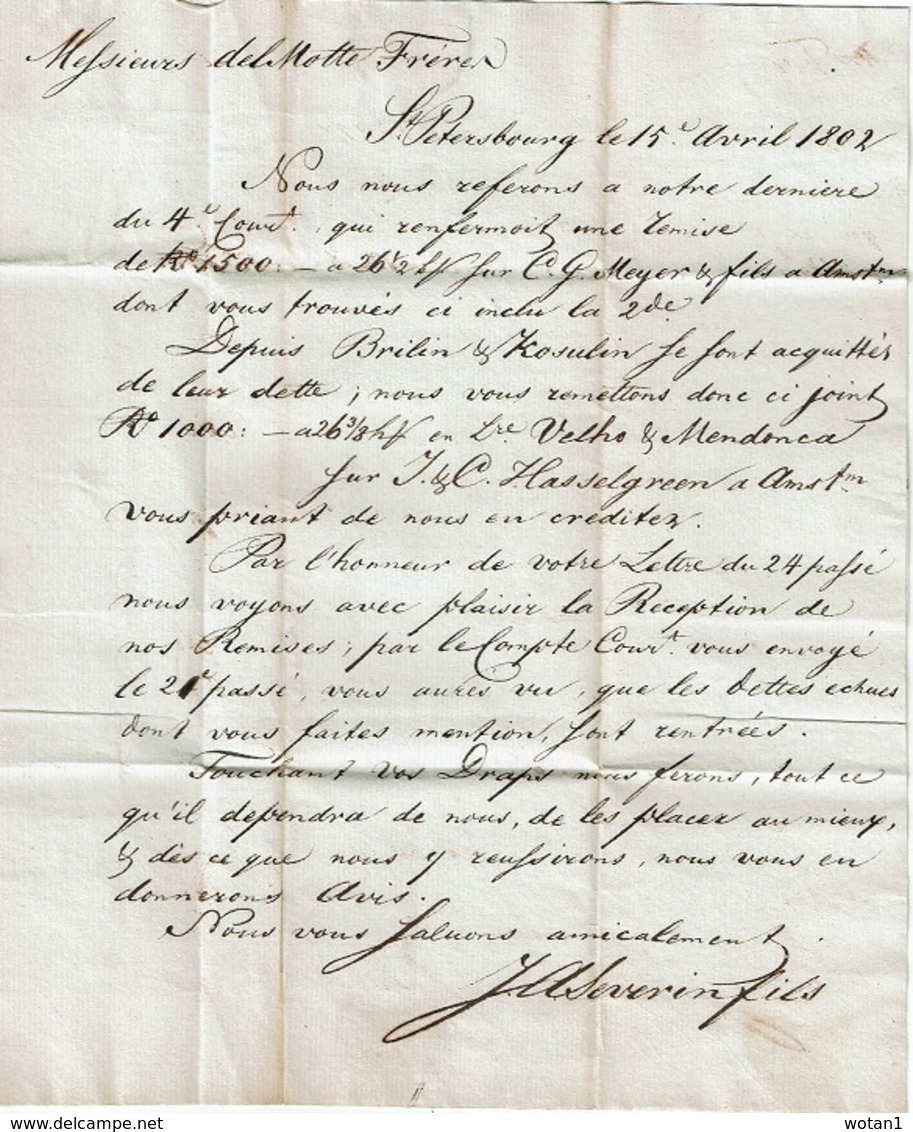 Messieurs delMotte Freres
St. Petersbourg le 15e. Avril 1802
Nous nous referons a notre derniere
du 4e. Court., qui renfermoit une remise
de Ro 1500: — a 26 1/2 hf sur C. G. Meyer & fils a Amstm
dont vous trouvés ci inclu la 2de
Depuis Brilin & Kosulin se sont acquittés
de leur dette; nous vous remettons donc ci joint
Ro 1000: — a 26 3/8 hf en Lre Velho & Mendonca
sur J. & C. Hasselgreen a Amstm
vous priant de nous en crediter.
Par l'honneur de votre Lettre du 24 passé
nous voyons avec plaisir la Reception de
nos Remises; par le Compte Court. vous envoyé
le 21e passé, vous aures vu, que les dettes echues
dont vous faites mention, sont rentrées.
Touchant vos Draps nous ferons, tout ce
qu'il dependra de nous, de les placer au mieux,
& dès ce que nous y reussirons, nous vous en
donnerons Avis.
Nous vous saluons amicalement.
J. A Severin fils
wotan1